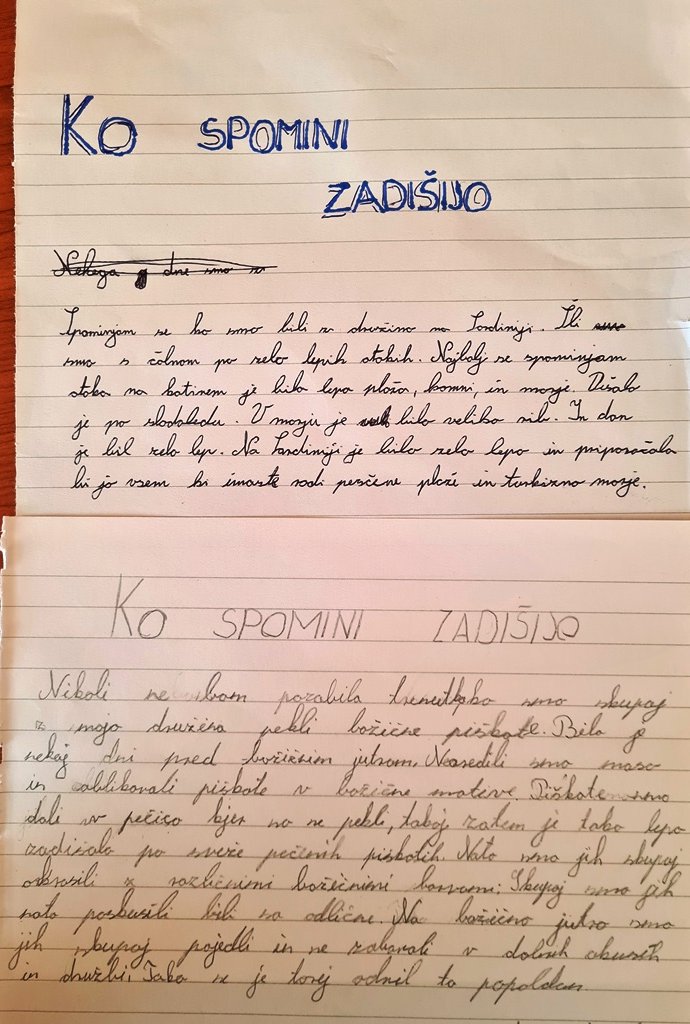 KO SPOMINI
ZADIŠIJO
Nekega dne smo z
Spominjam se ko smo bili z družino na Sardiniji. Šli
smo s čolnom po zelo lepih otokih. Najbolj se spominjam
otoka na katirem je bila lepa plaža, kamni, in morje. Dišalo
je po sladoledu. V morju je bilo veliko rib. Ta dan
je bil zelo lep. Na Sardiniji je bilo zelo lepo in priporočala
bi jo vsem ki imaste radi peščene plaže in turkizno morje.
KO SPOMINI ZADIŠIJO
Nikoli ne bom pozabila trenutka ko smo skupaj
z mojo družino pekli božične piškote. Bilo je
nekaj dni pred božičnim jutrom. Naredili smo maso
in oblikovali piškote v božične motive. Piškote smo
dali v pečico kjer so se pekli, takoj zatem je tako lepo
zadišalo po sveže pečenih piškotih. Nato smo jih skupaj
okrasili z različnimi božičnimi barvami. Skupaj smo jih
nato poskusili bili so odlične. Na božično jutro smo
jih skupaj pojedli in se zabavali v dobrih okusih
in družbi. Tako se je torej odvil ta popoldan.